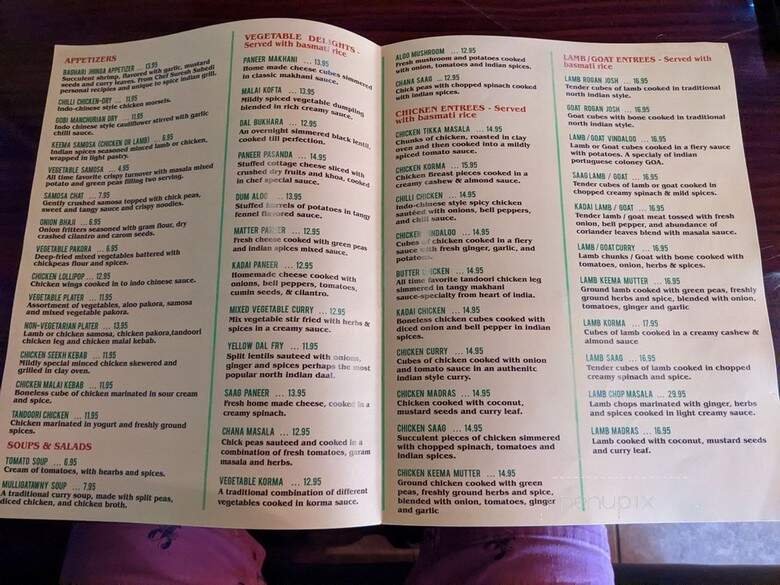 APPETIZERS
BAGHARI JHINGA APPETIZER ... 13.95
Succulent shrimp, flavored with garlic, mustard
seeds and curry leaves. From Chef Suresh Subedi
personal recipies and unique to spice indian grill.
CHILLI CHICKEN-DRY ... 11.95
Indo-chinese style chicken morsels.
GOBI MANCHURIAN DRY ... 11.95
Indo chinese style cauliflower stired with garlic
chilli sauce.
KEEMA SAMOSA (CHICKEN OR LAMB) ... 6.95
Indian spices seasoned minced lamb or chicken,
wrapped in light pastry.
VEGETABLE SAMOSA ... 4.95
All time favorite crispy turnover with masala mixed
potato and green peas filling two serving.
SAMOSA CHAT ... 7.95
Gently crushed samosa topped with chick peas,
sweet and tangy sauce and crispy noodles.
ONION BHAJI ... 6.95
Onion fritters seasoned with gram flour, dry
crashed cilantro and carom seeds.
VEGETABLE PAKORA ... 6.95
Deep-fried mixed vegetables battered with
chickpeas flour and spices.
CHICKEN LOLLIPOP ... 12.95
Chicken wings cooked in to indo chinese sauce.
VEGETABLE PLATER ... 11.95
Assortment of vegetables, aloo pakora, samosa
and mixed vegetable pakora.
NON-VEGETARIAN PLATER ... 13.95
Lamb or chicken samosa, chicken pakora,tandoori
chicken leg and chicken malai kebab.
CHICKEN SEEKH KEBAB ... 11.95
Mildly special minced chicken skewered and
grilled in clay oven.
CHICKEN MALAI KEBAB ... 11.95
Boneless cube of chicken marinated in sour cream
and spice.
TANDOORI CHICKEN ... 11.95
Chicken marinated in yogurt and freshly ground
spices.
SOUPS & SALADS
TOMATO SOUP ... 6.95
Cream of tomatoes, with hearbs and spices.
MULLIGATAWNY SOUP ... 7.95
A traditional curry soup, made with split peas,
diced chicken, and chicken broth.
VEGETABLE DELIGHTS -
Served with basmati rice
PANEER MAKHANI ... 13.95
Home made cheese cubes simmered
in classic makhani sauce.
MALAI KOFTA ... 13.95
Mildly spiced vegetable dumpling
blended in rich creamy sauce.
DAL BUKHARA ... 12.95
An overnight simmered black lentil,
cooked till perfection.
PANEER PASANDA ... 14.95
Stuffed cottage cheese sliced with
crushed dry fruits and khoa, cooked
in chef special sauce.
DUM ALOO ... 13.95
Stuffed barrels of potatoes in tangy
fennel flavored sauce.
MATTER PANEER ... 12.95
Fresh cheese cooked with green peas
and indian spices mixed sauce.
KADAI PANEER ... 12.95
Homemade cheese cooked with
onions, bell peppers, tomatoes,
cumin seeds, & cilantro.
MIXED VEGETABLE CURRY ... 12.95
Mix vegetable stir fried with herbs &
spices in a creamy sauce.
YELLOW DAL FRY ... 11.95
Split lentils sauteed with onions,
ginger and spices perhaps the most
popular north indian daal.
SAAG PANEER ... 13.95
Fresh home made cheese, cooked in a
creamy spinach.
CHANA MASALA ... 12.95
Chick peas sauteed and cooked in a
combination of fresh tomatoes, garam
masala and herbs.
VEGETABLE KORMA ... 12.95
A traditional combination of different
vegetables cooked in korma sauce.
ALOO MUSHROOM ... 12.95
Fresh mushroom and potatoes cooked
with onion, tomatoes and indian spices.
CHANA SAAG ... 12.95
Chick peas with chopped spinach cooked
with indian spices.
CHICKEN ENTREES - Served
with basmati rice
CHICKEN TIKKA MASALA ... 14.95
Chunks of chicken, roasted in clay
oven and then cooked into a mildly
spiced tomato sauce.
CHICKEN KORMA ... 15.95
Chicken Breast pieces cooked in a
creamy cashew & almond sauce.
CHILLI CHICKEN ... 14.95
Indo-chinese style spicy chicken
sautéed with onions, bell peppers,
and chili sauce.
CHICKEN VINDALOO ... 14.95
Cubes of chicken cooked in a fiery
sauce with fresh ginger, garlic, and
potatoes.
BUTTER CHICKEN ... 14.95
All time favorite tandoori chicken leg
simmered in tangy makhani
sauce-specialty from heart of india.
KADAI CHICKEN ... 14.95
Boneless chicken cubes cooked with
diced onion and bell pepper in indian
spices.
CHICKEN CURRY ... 14.95
Cubes of chicken cooked with onion
and tomato sauce in an authenitc
indian style curry.
CHICKEN MADRAS ... 14.95
Chicken cooked with coconut,
mustard seeds and curry leaf.
CHICKEN SAAG ... 14.95
Succulent pieces of chicken simmered
with chopped spinach, tomatoes and
indian spices.
CHICKEN KEEMA MUTTER ... 14.95
Ground chicken cooked with green
peas, freshly ground herbs and spice,
blended with onion, tomatoes, ginger
and garlic
LAMB/GOAT ENTREES - Served
with basmati rice
LAMB ROGAN JOSH ... 16.95
Tender cubes of lamb cooked in traditional
north indian style.
GOAT ROGAN JOSH ... 16.95
Goat cubes with bone cooked in traditional
north indian style.
LAMB / GOAT VINDALOO ... 16.95
Lamb or Goat cubes cooked in a fiery sauce
with potatoes. A specialy of indian
portuguese colony GOA.
SAAG LAMB / GOAT ... 16.95
Tender cubes of lamb or goat cooked in
chopped creamy spinach & mild spices.
KADAI LAMB / GOAT ... 16.95
Tender lamb / goat meat tossed with fresh
onion, bell pepper, and abundance of
coriander leaves blend with masala sauce.
LAMB / GOAT CURRY ... 16.95
Lamb chunks / Goat with bone cooked with
tomatoes, onion, herbs & spices.
LAMB KEEMA MUTTER ... 16.95
Ground lamb cooked with green peas, freshly
ground herbs and spice, blended with onion,
tomatoes, ginger and garlic
LAMB KORMA ... 17.95
Cubes of lamb cooked in a creamy cashew &
almond sauce
LAMB SAAG ... 16.95
Tender cubes of lamb cooked in chopped
creamy spinach and spice.
LAMB CHOP MASALA ... 29.95
Lamb chops marinated with ginger, herbs
and spices cooked in light creamy sauce.
LAMB MADRAS ... 16.95
Lamb cooked with coconut, mustard seeds
and curry leaf.
menupix